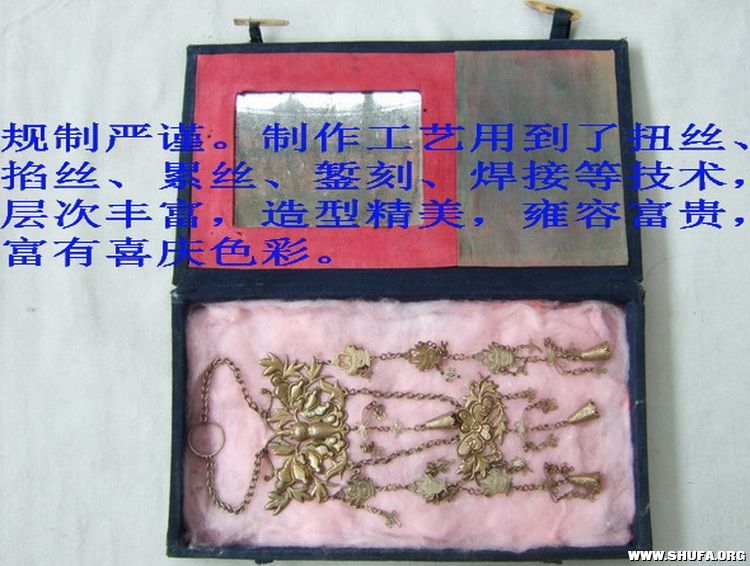 规制严谨。制作工艺用到了扭丝、
掐丝、累丝、錾刻、焊接等技术，
层次丰富，造型精美，雍容富贵，
富有喜庆色彩。
WWW.SHUFA.ORG